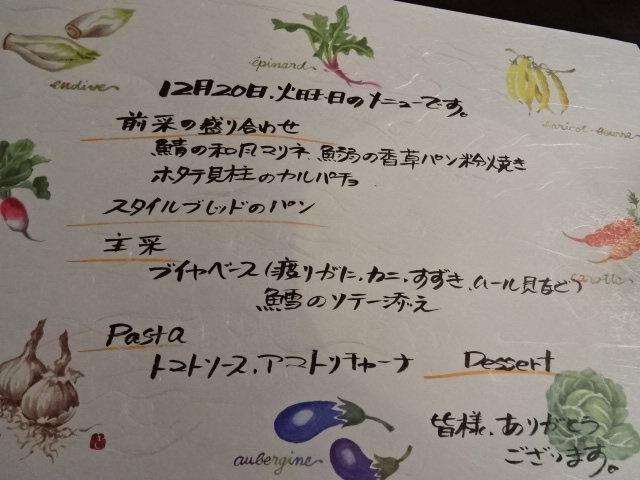 endive
épinard
haricot-beurre
12月20日.火旺日のメニューです。
前采の盛り合わせ
鯖の和風マリネ.魚弱の香草パン粉焼き
ホタテ貝柱のカルパチョ
スタイルブレッドのパン
主采
ブイヤベース(渡りガに.カニ.すずき.ムール貝など)
鱈のソテー添え
Pasta
トマトソース.アマトリチャーナ
Dessert
皆様、ありがとう
ございます。
aubergine